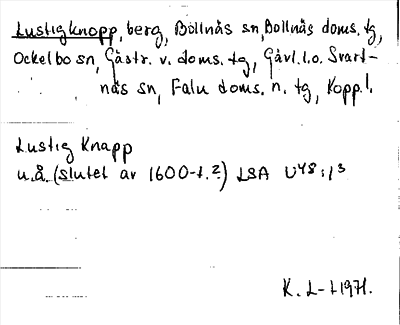 Lustigknopp, berg, Bollnäs sn, Bollnäs doms. tg,
Ockelbo sn, Gästr. v. doms. tg, Gävl. l. o. Svart-
näs sn, Falu doms. n. tg, Kopp. l.
Lustig Knapp
u.å. (slutet av 1600-t.?) LSA U48:1³
K. L-t 1971.